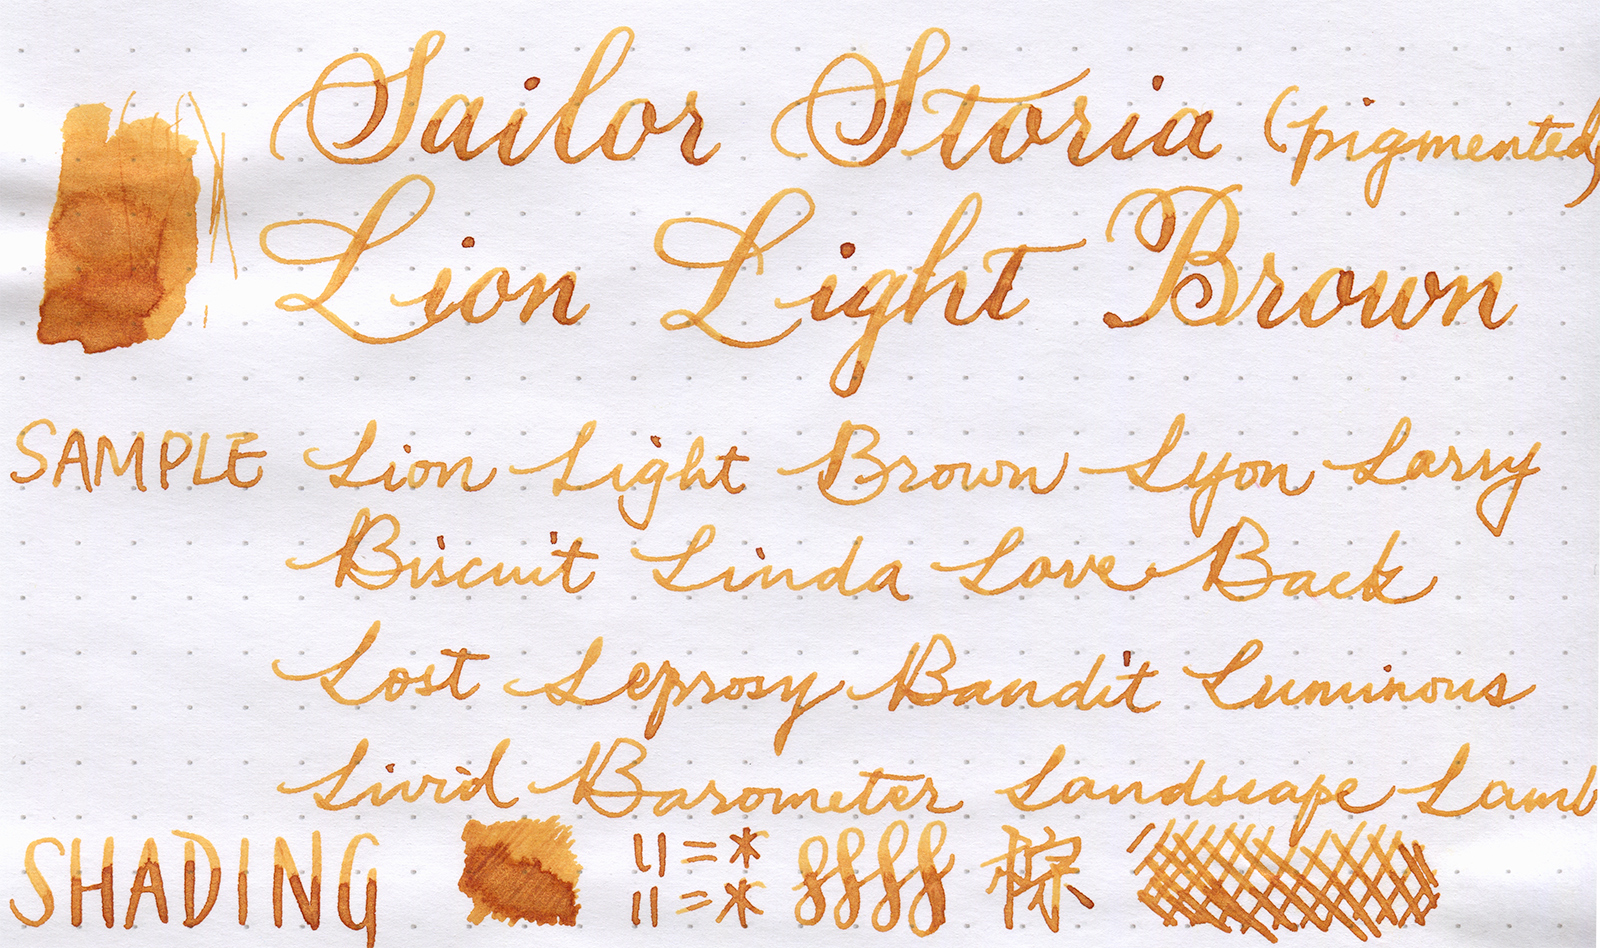 Sailor Storia (pigmented)
Lion Light Brown
SAMPLE Lion Light Brown Lyon Larry
Biscuit Linda Love Back
Lost Leprosy Bandit Luminous
Livid Barometer Landscape Lamb
SHADING 棕